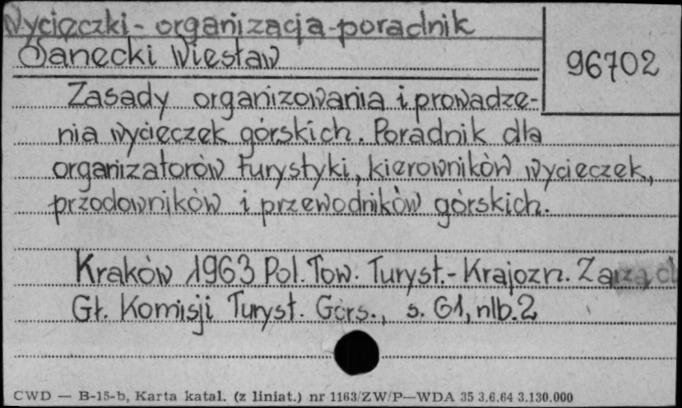 Wycieczki - organizacja - poradnik
Janecki Wiesław
96702
Zasady organizowania i prowadze-
nia wycieczek górskich. Poradnik dla
organizatorów turystyki, kierowników wycieczek,
przodowników i przewodników górskich.
Kraków 1963 Pol. Tow. Turyst. - Krajozn. Zarząd
Gł. Komisji Turyst. Górs., s. 61, nlb. 2
CWD — B-15-b, Karta katal. (z liniat.) nr 1163/ZW/P—WDA 35 3.6.64 3.130.000